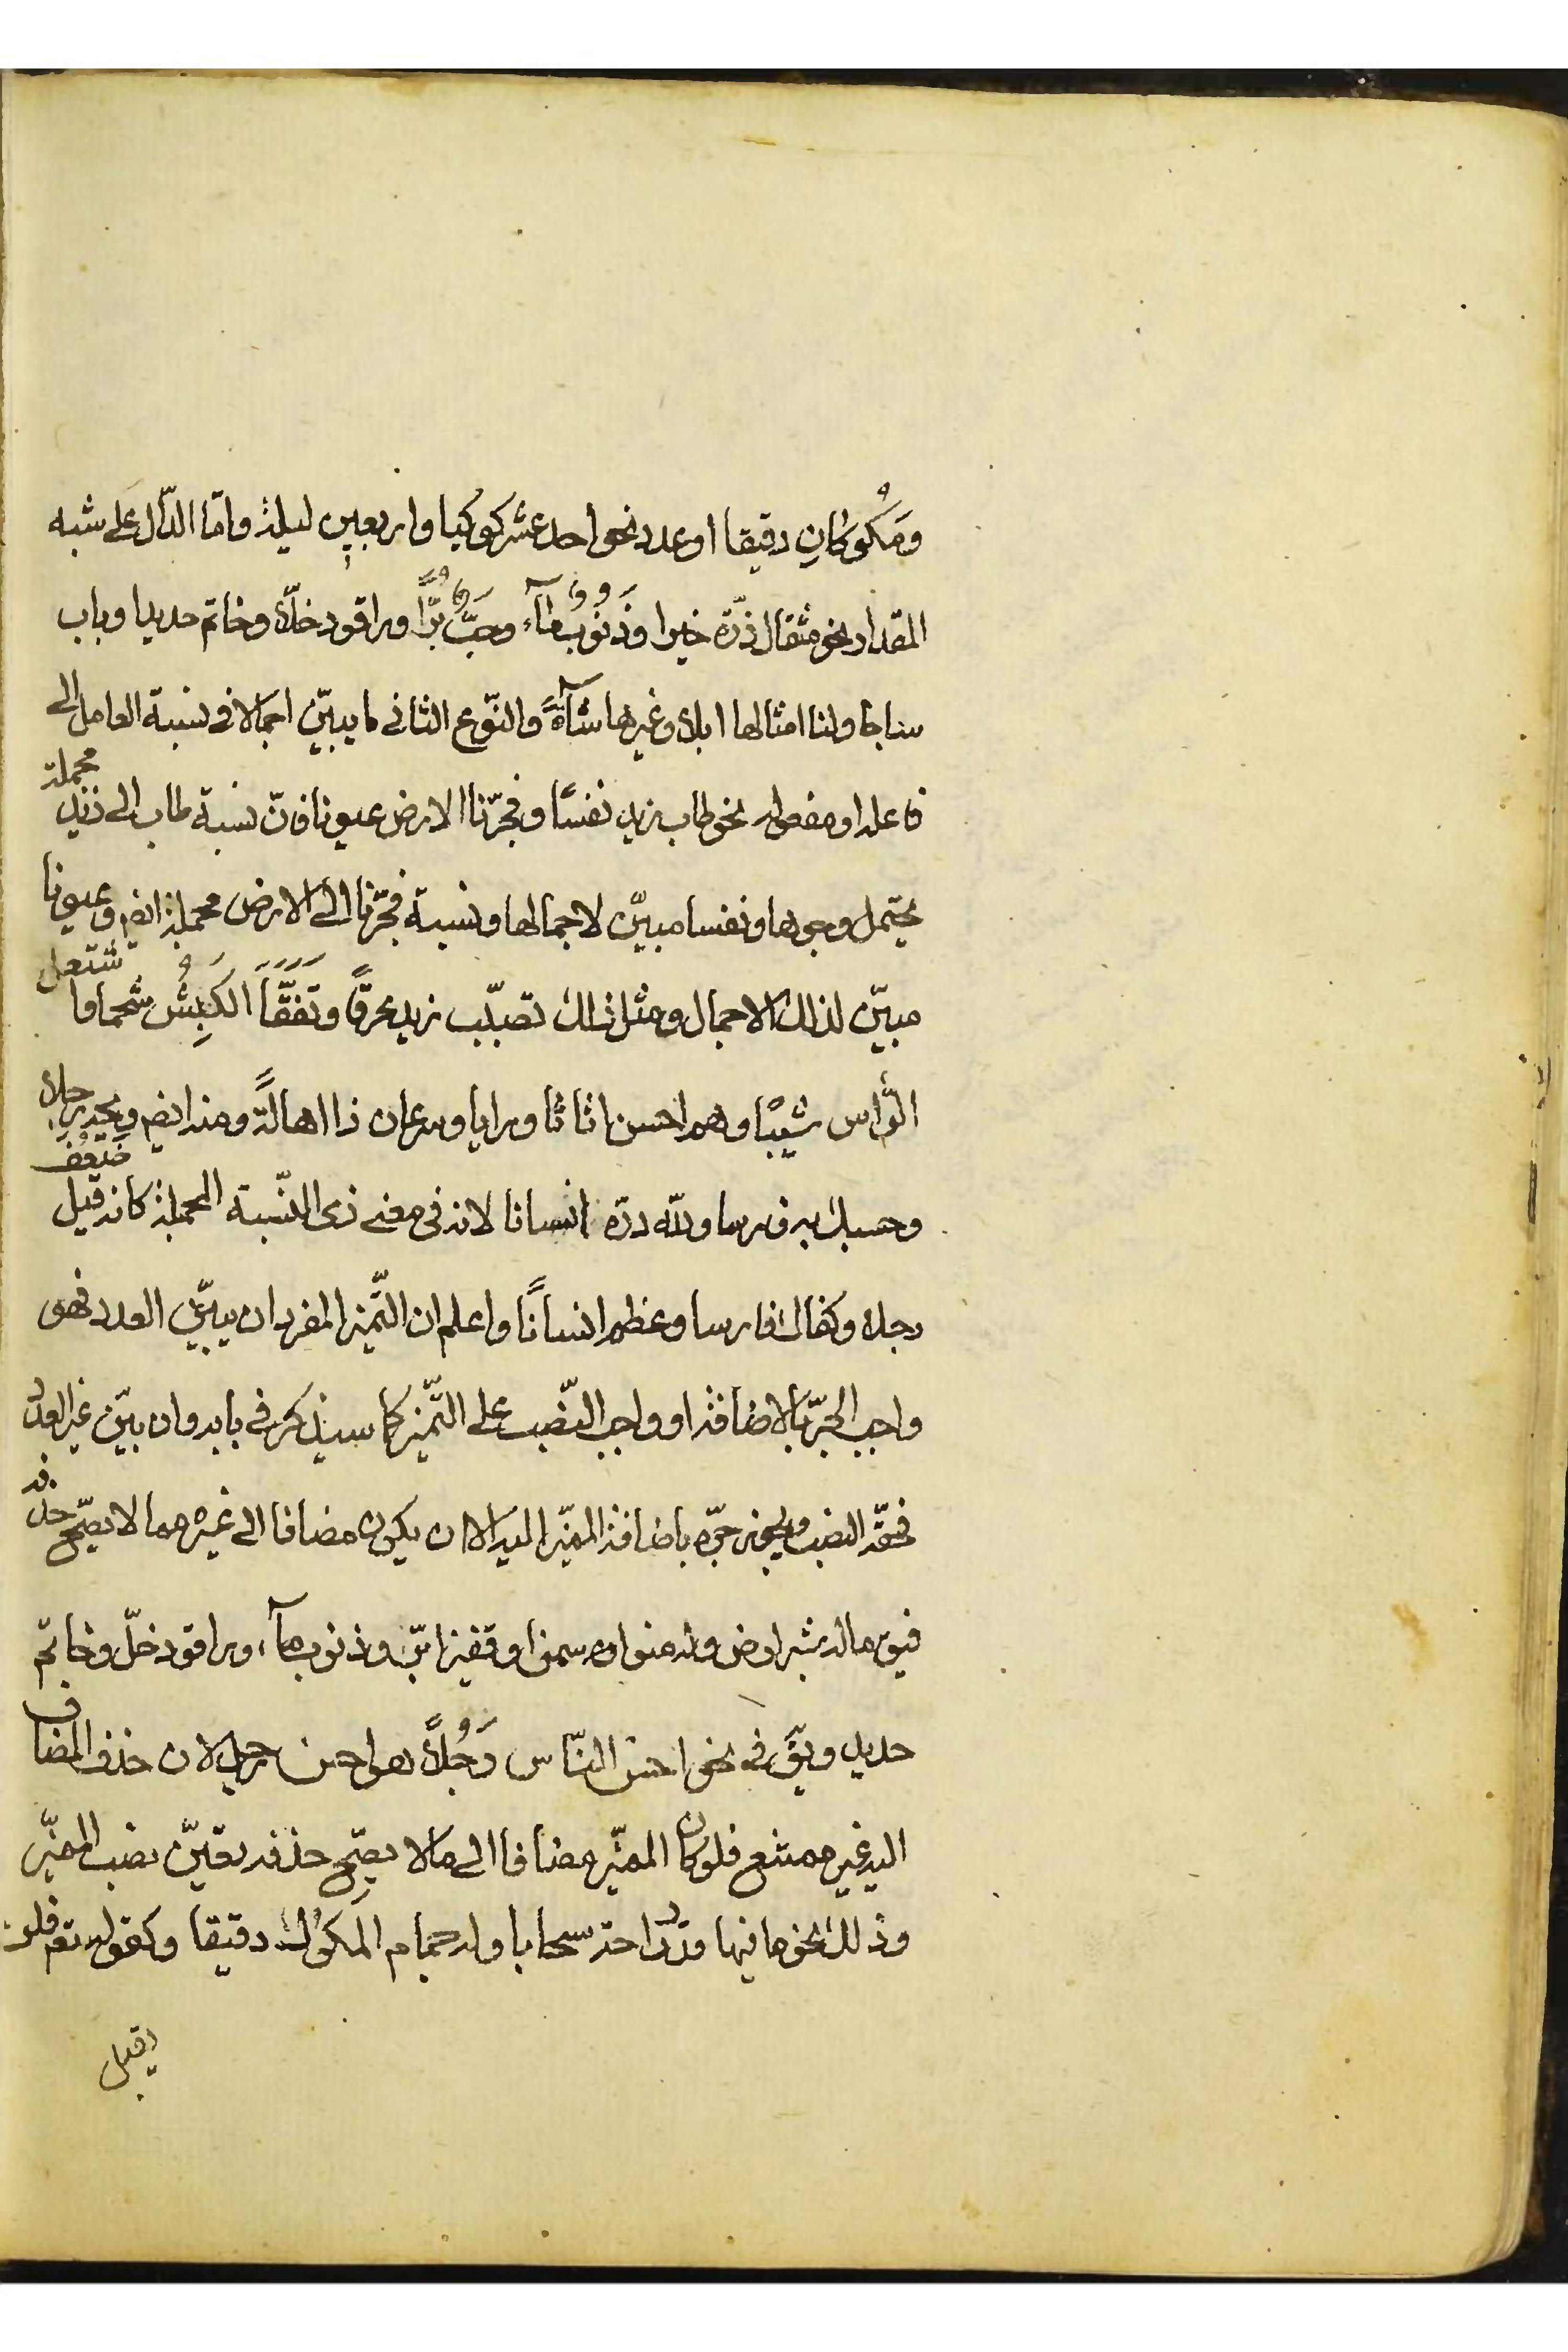 ومَكُّوكانِ دقيقا او عدد نحو احد عشر كوكبا واربعين ليلة وامّا الدّال على شبه
المقدار نحو مثقال ذرّة خيرا وذَنُوبٌ مآءً وحَبٌّ بُرًّا وراقود خلّا وخاتم حديدا وباب
ساجا ولنا امثالها ابلا وغيرها شآءً والنّوع الثانى ما يبيّن اجمالا فى نسبة العامل الى
فاعله او مفعوله نحو طاب زيد نفسًا وفجّرنا الارض عيونا فانّ نسبة طاب الى زيد مجملة
يحتمل وجوها ونفسا مبيّن لاجمالها ونسبة فجّرنا الى الارض مجملة ايضم وعيونا
مبيّن لذلك الاجمال ومثل ذلك تصبّب زيد عرقًا وتَفَقَّأَ الكَبشُ شحما واشتعل
الرّاس شيبًا وهم احسن اثاثا ورايا وسرعان ذا اهالةً ومنه ايضم ويحه رجلا
وحسبك به فارسا ولله درّه انسانا لانه فى معنى ذى النّسبة المجملة كانه قيل ضَعُفَ
رجلا وكفاك فارسا وعظم انسانًا واعلم ان التّميز المفرد ان يبيّن العدد فهو
واجب الجرّ بالاضافة او واجب النّصب على التّميز كما سيذكر فى بابه وان بيّن غير العدد
فحقّه النصب ويجوز جرّه باضافة المميّز اليه الا ان يكون مضافا الى غيره مما لا يصحّ حذفه
فيق ماله شبر ارض وله منوا سمن وقفيزا برّ وذنوب مآء وراقود خلّ وخاتم
حديد ويقَ فى نحو احسن النّاس رَجُلًا هو احسن رجل لان حذف المضاف
اليه غير ممتنع فلو كان المميّز مضافا الى ما لا يصحّ حذفه تعيّن نصب المميّز
وذلك نحو ما فيها قدر راحة سحابا وله جمام المَكُّوك دقيقا وكقوله تعم فلن
يقبل